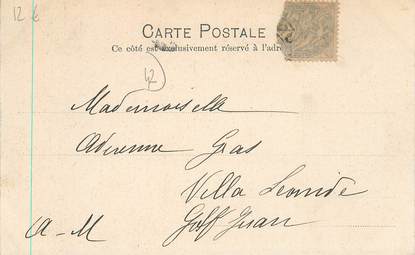 12 €
CARTE POSTALE
Ce côté est exclusivement réservé à l'adre
42
Mademoiselle
Gras
Villa Leonide
A-M Golf Juan